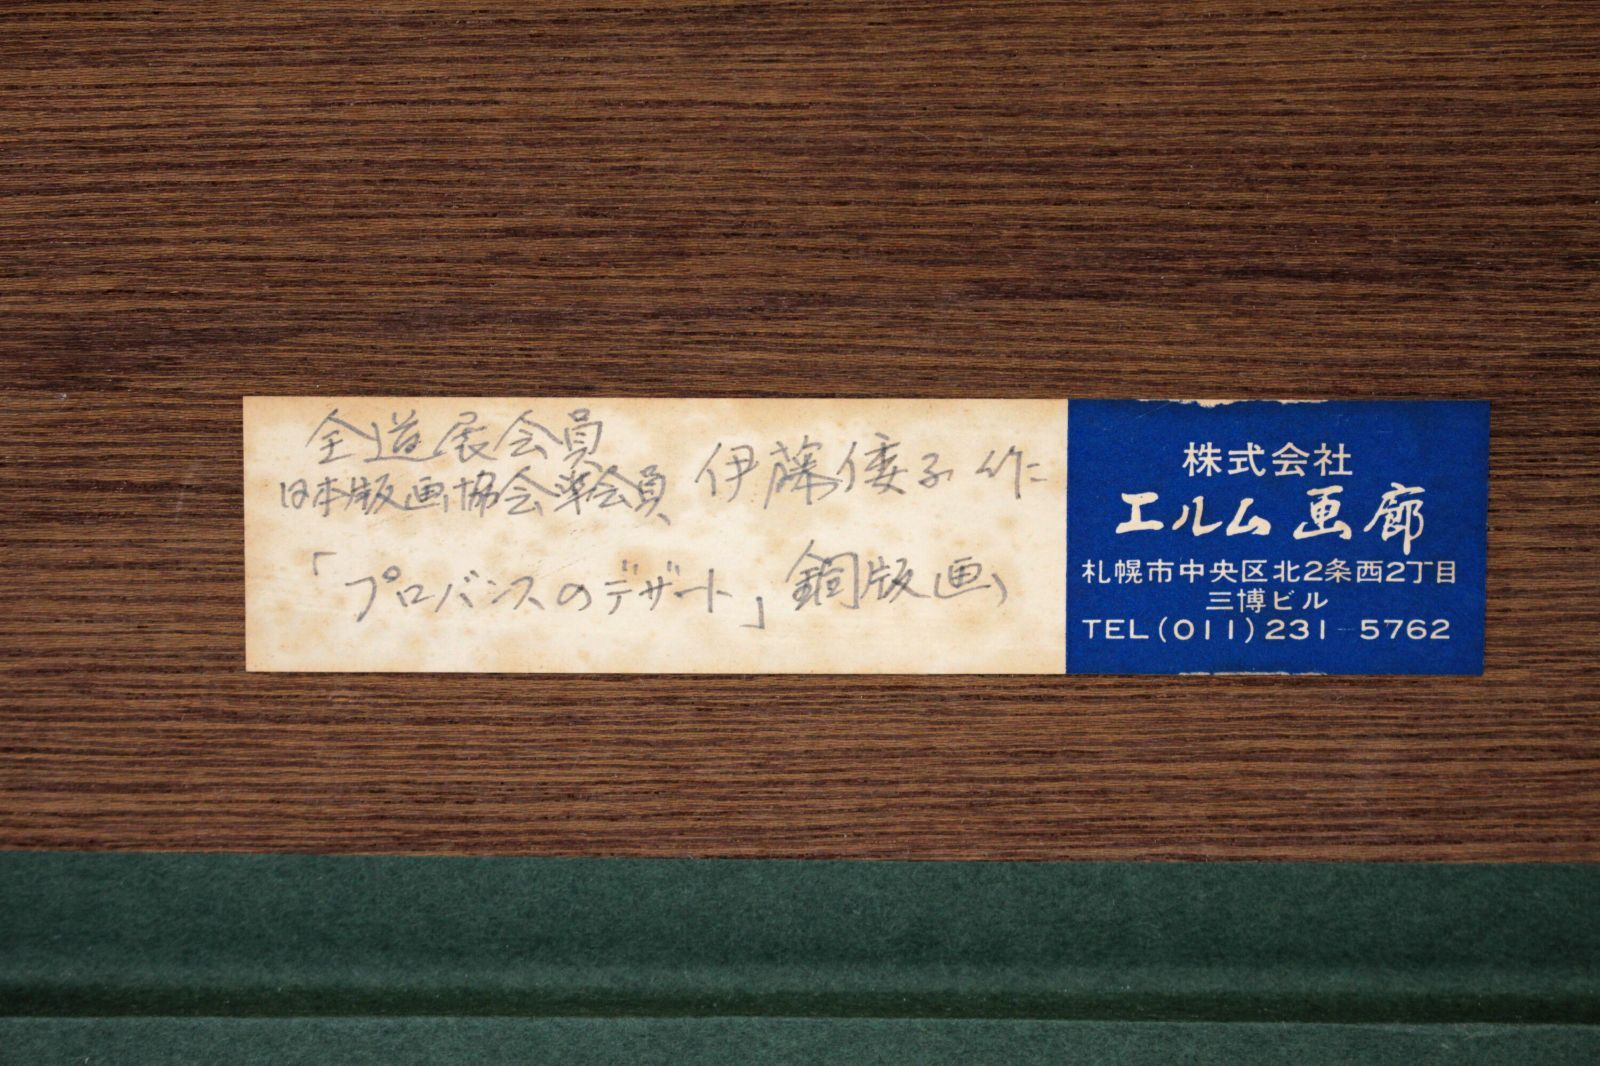 全道展会員
日本版画協会準会員 伊藤倭子作
「プロバンスのデザート」銅版画
株式会社
エルム画廊
札幌市中央区北2条西2丁目
三博ビル
TEL(011)231-5762